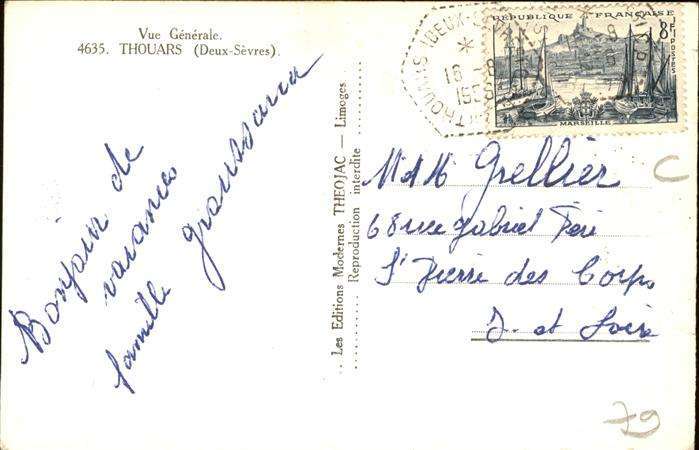 Vue Générale.
4635. THOUARS (Deux-Sèvres).
Bonjour de
vacances
famille
.. Les Editions Modernes THEOJAC — Limoges
Reproduction interdite
RÉPUBLIQUE FRANÇAISE
8F
POSTES
MARSEILLE
THOUARS (DEUX-SÈVRES)
16 - 8
195
M et M Grellier
68 rue Gabriel Péri
St Pierre des Corps
I. et Loire
C
79